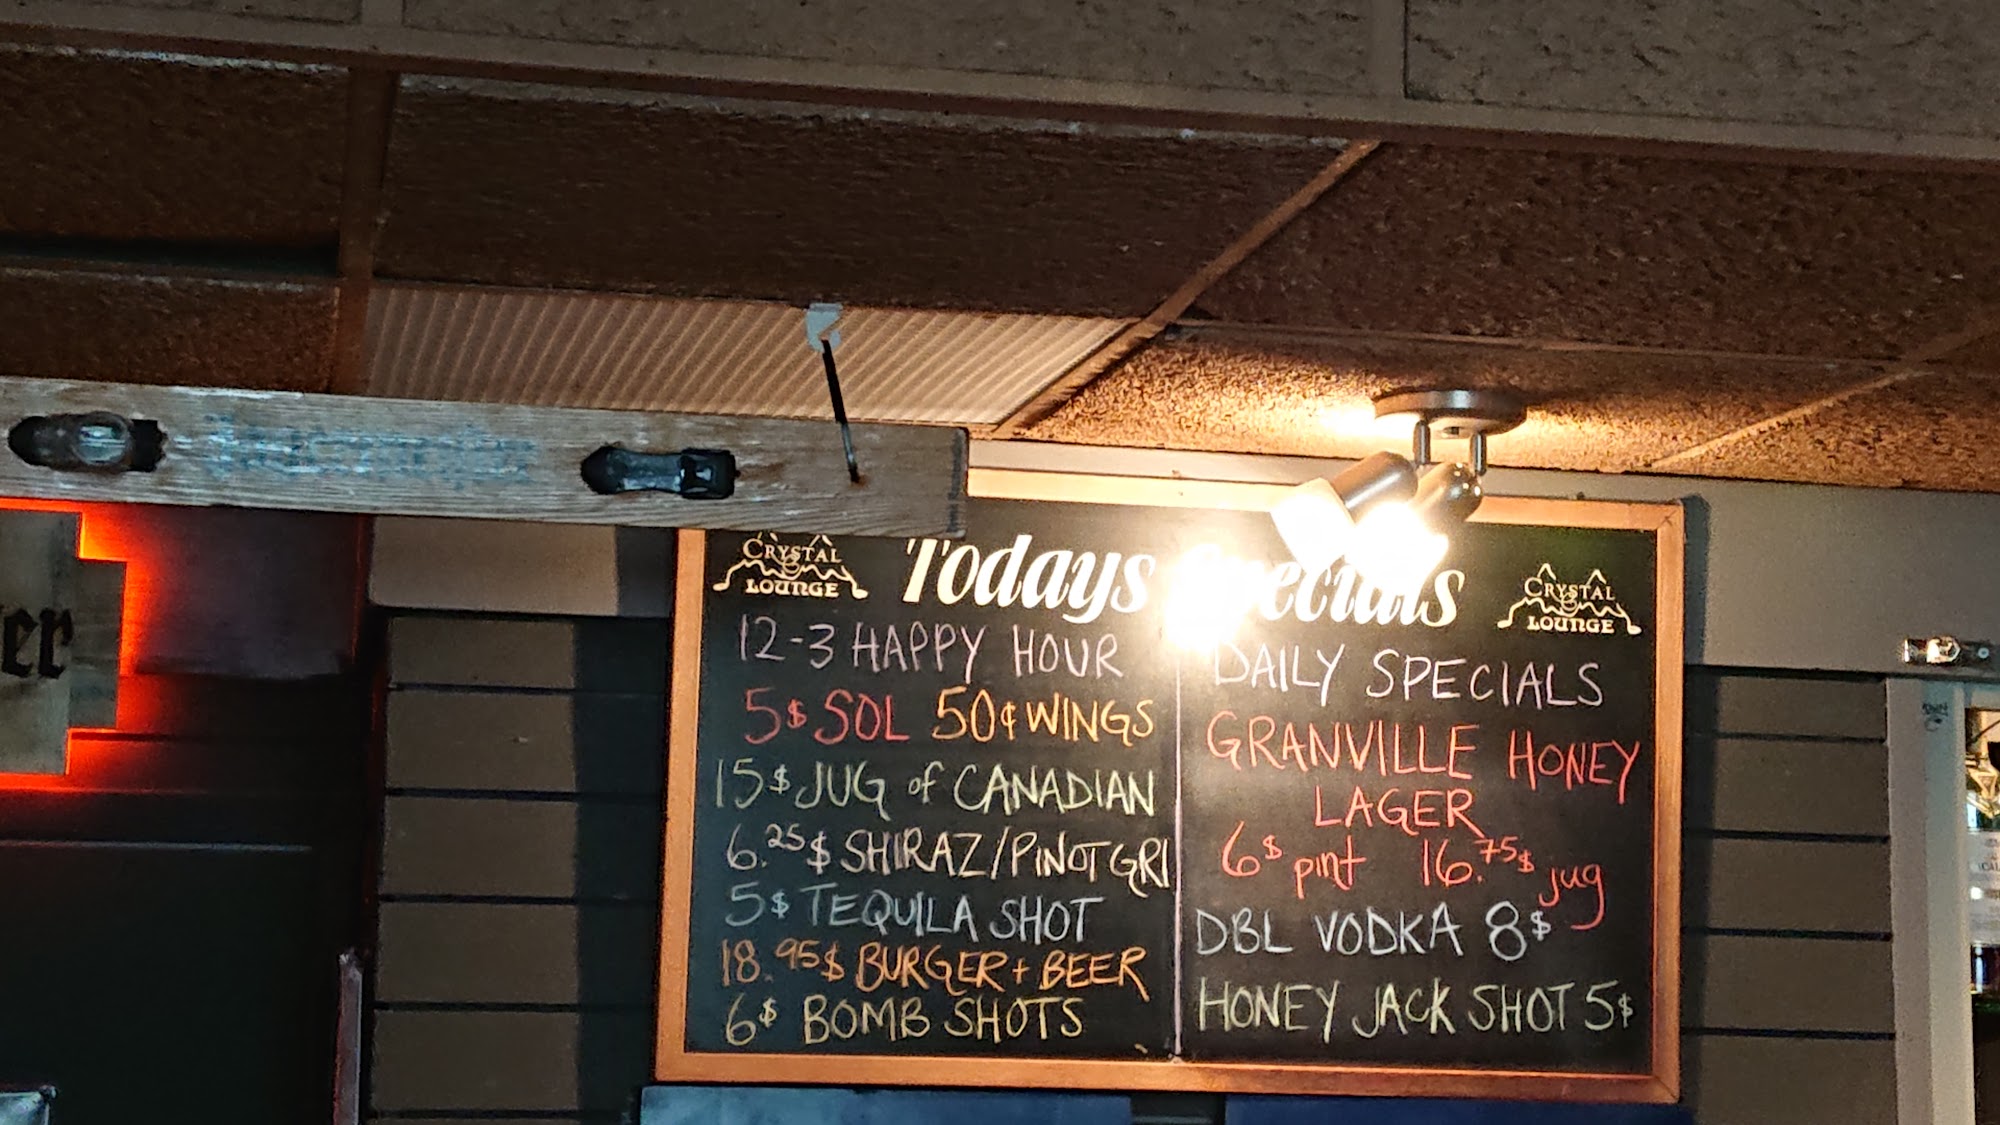 CRYSTAL
LOUNGE
Todays Specials
CRYSTAL
LOUNGE
12-3 HAPPY HOUR
5$ SOL 50¢ WINGS
15$ JUG of CANADIAN
6.25$ SHIRAZ/PINOT GRI
5$ TEQUILA SHOT
18.95$ BURGER + BEER
6$ BOMB SHOTS
DAILY SPECIALS
GRANVILLE HONEY
LAGER
6$ pint 16.75$ jug
DBL VODKA 8$
HONEY JACK SHOT 5$
er